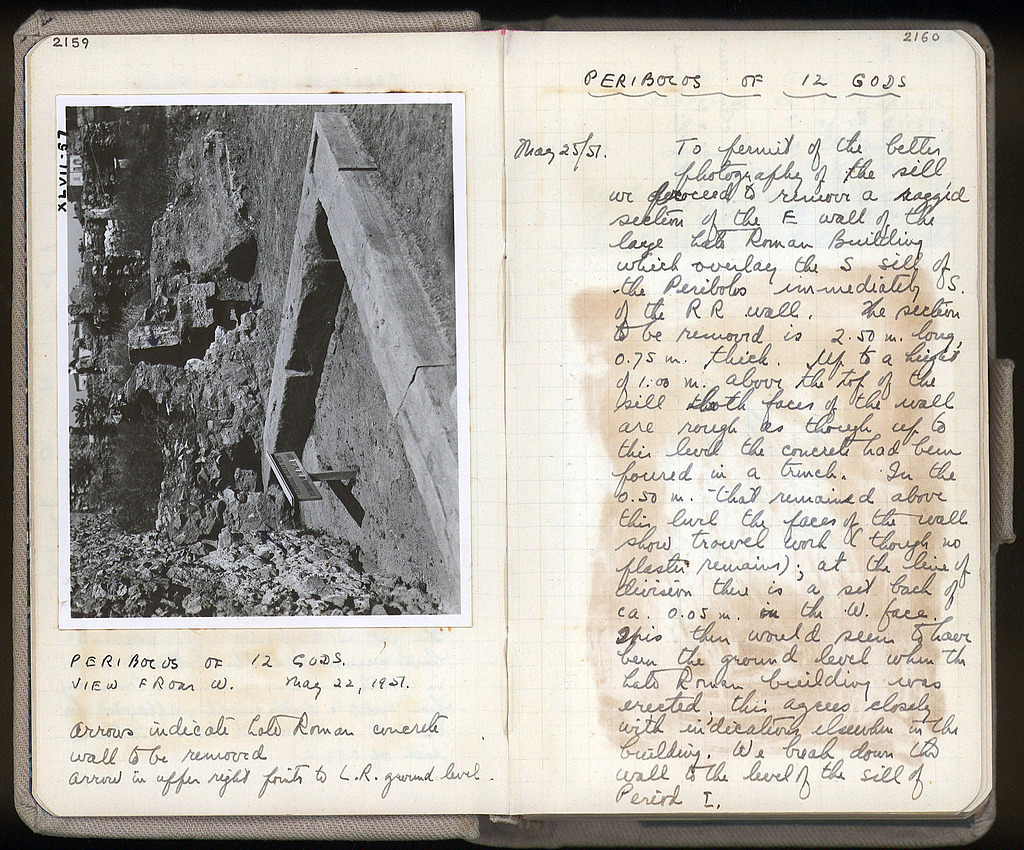 2159
XLVII-57
PERIBOLOS OF 12 GODS.
VIEW FROM W. May 22, 1951.
Arrows indicate Late Roman concrete
wall to be removed
Arrow in upper right points to L.R. ground level.
2160
PERIBOLOS OF 12 GODS
May 25/51. To permit of the better
photography of the sill
we proceed to remove a ragged
section of the E wall of the
large Late Roman Building
which overlay the S sill of
the Peribolos immediately S.
of the RR wall. The section
to be removed is 2.50 m. long,
0.75 m. thick. Up to a height
of 1.00 m. above the top of the
sill both faces of the wall
are rough as though up to
this level the concrete had been
poured in a trench. In the
0.50 m. that remained above
this level the faces of the wall
show trowel work (though no
plaster remains); at the line of
division there is a set back of
ca. 0.05 m. in the W. face.
This then would seem to have
been the ground level when the
Late Roman building was
erected; this agrees closely
with indications elsewhere in the
building. We break down the
wall to the level of the sill of
Period I.